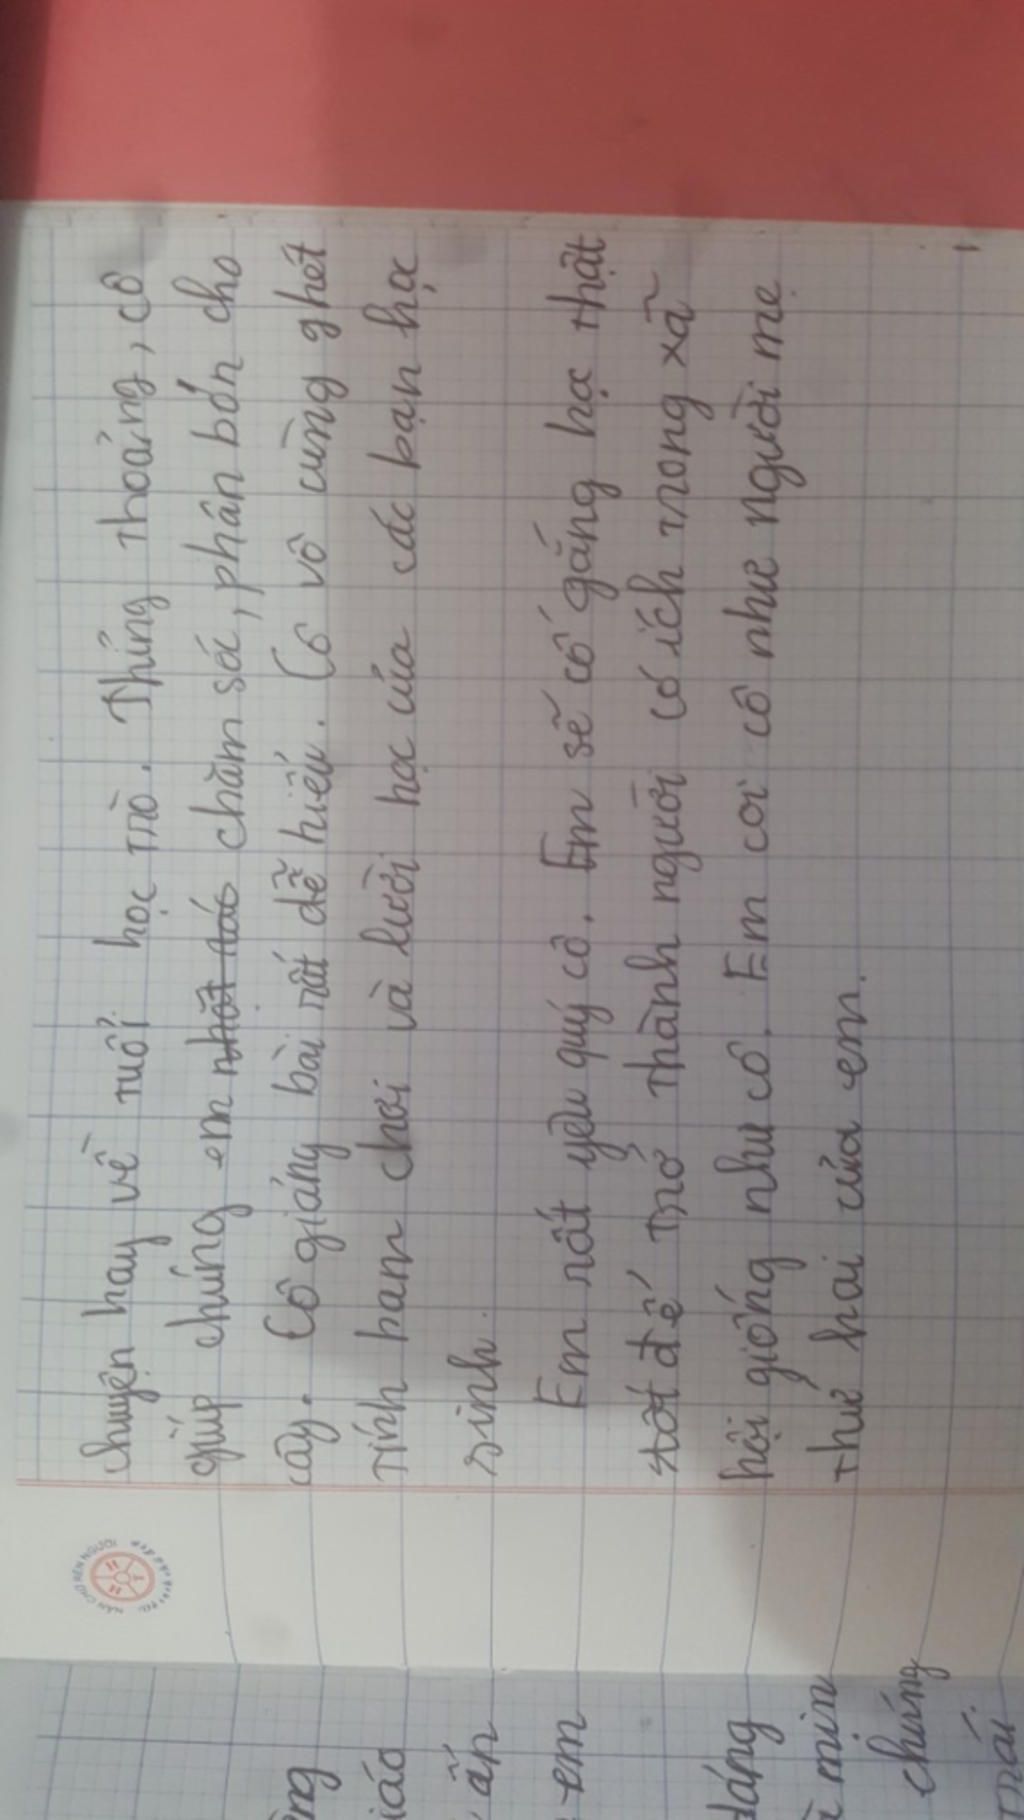 chuyện hay về tuổi học trò. Thỉng thoảng, cô
giúp chúng em nhặt tác chăm sóc, phân bón cho
cây. Cô giảng bài rất dễ hiểu. Cô vô cùng ghét
tính ham chơi và lười học của các bạn học
sinh.
Em rất yêu quý cô. Em sẽ cố gắng học thật
tốt để trở thành người có ích trong xã
hội giống như cô. Em coi cô như người mẹ
thứ hai của em.
NẮN CHỮ RÈN NGƯỜI
iáo
ẩn
em
dáng
mịn
chúng